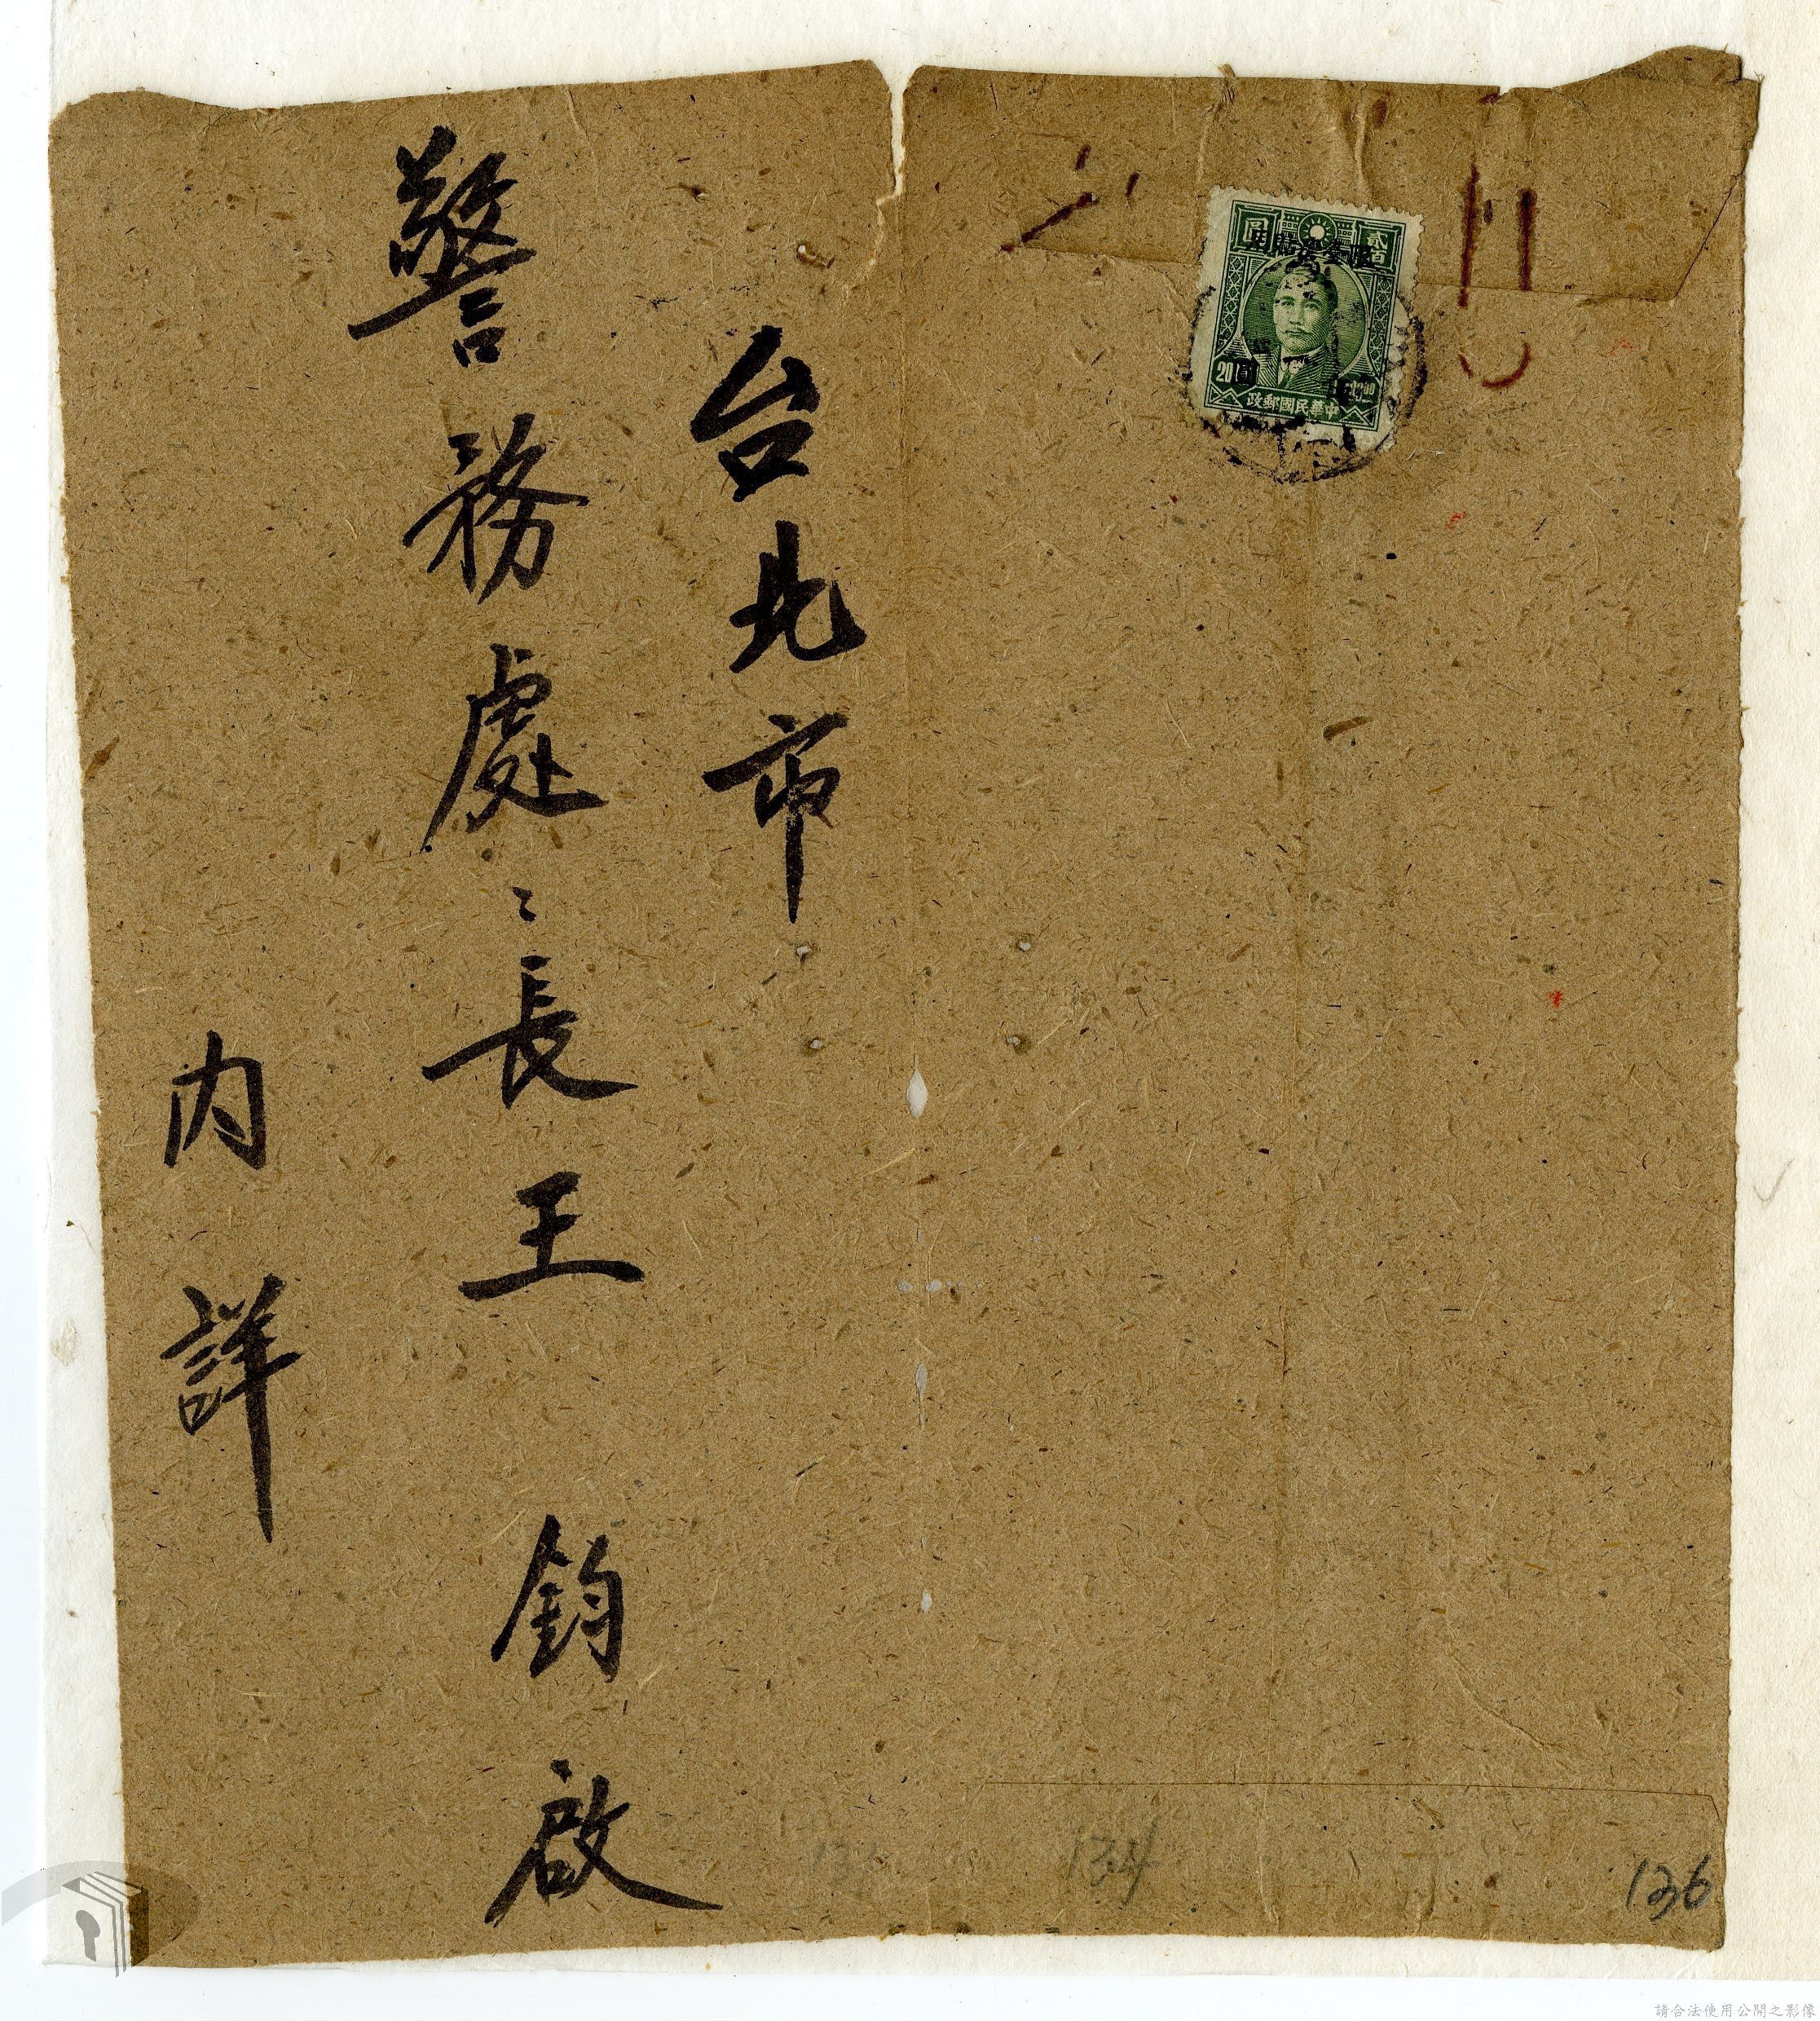 台北市
警務處〻長王 鈞啟
內詳
貳百
圓
限臺灣貼用
中華民國郵政
134
136
請合法使用公開之影像